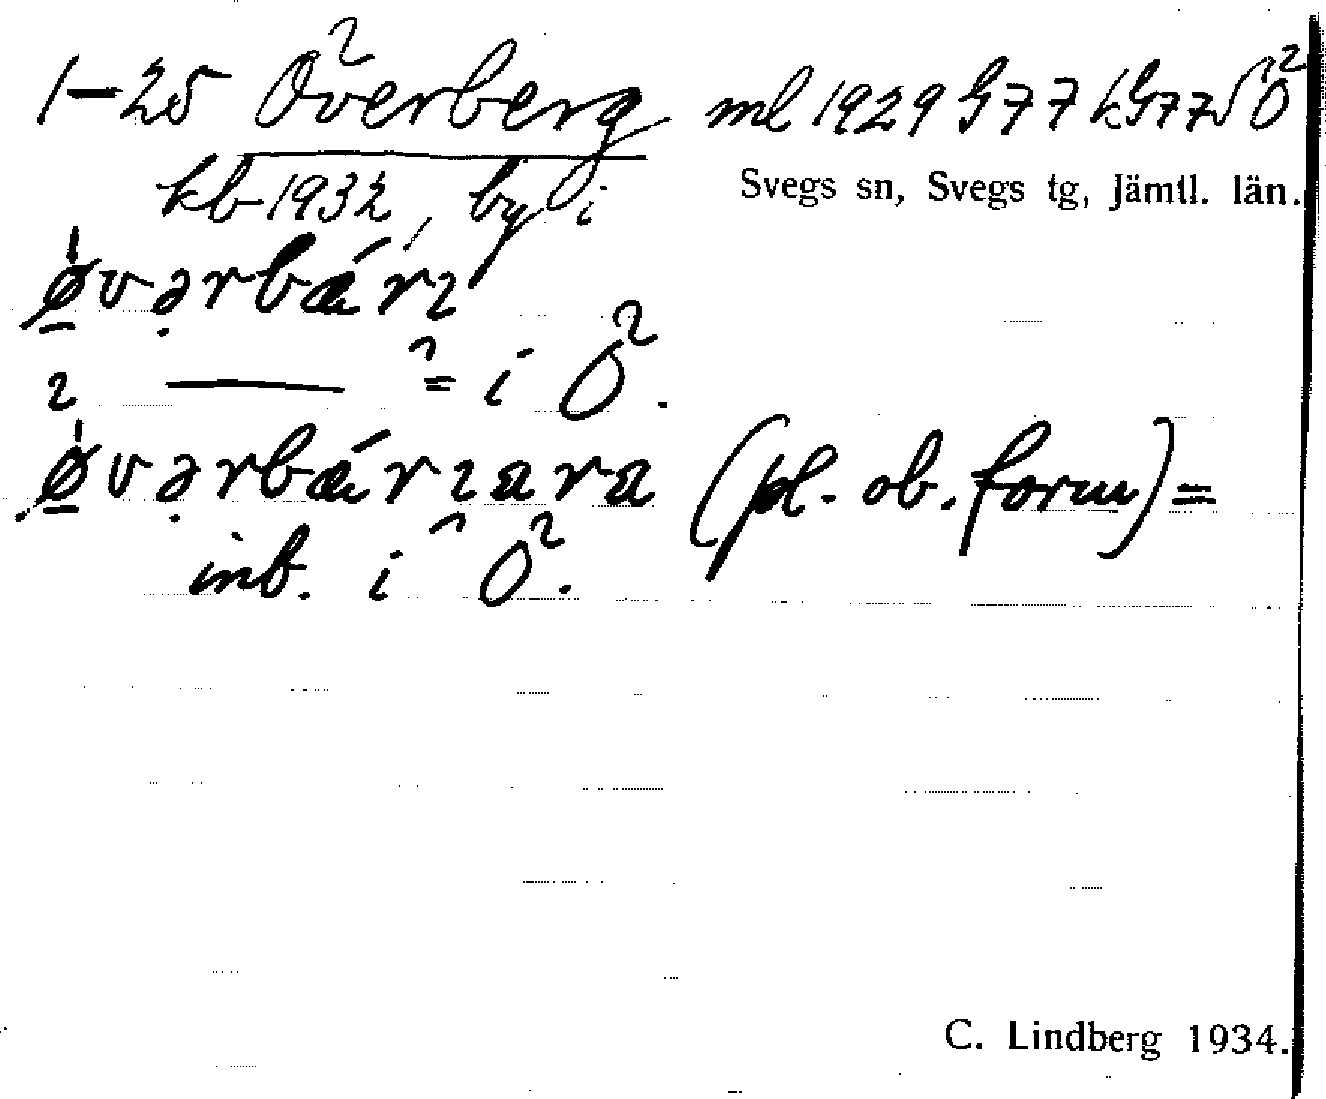 1-25 Överberg ml 1929 G77 kG77SÖ
Svegs sn, Svegs tg, Jämtl. län.
kb 1932, by i
øvərbærı
ı — = i Ö.
øvərbærıara (pl. ob. form) =
inb. i Ö.
C. Lindberg 1934.